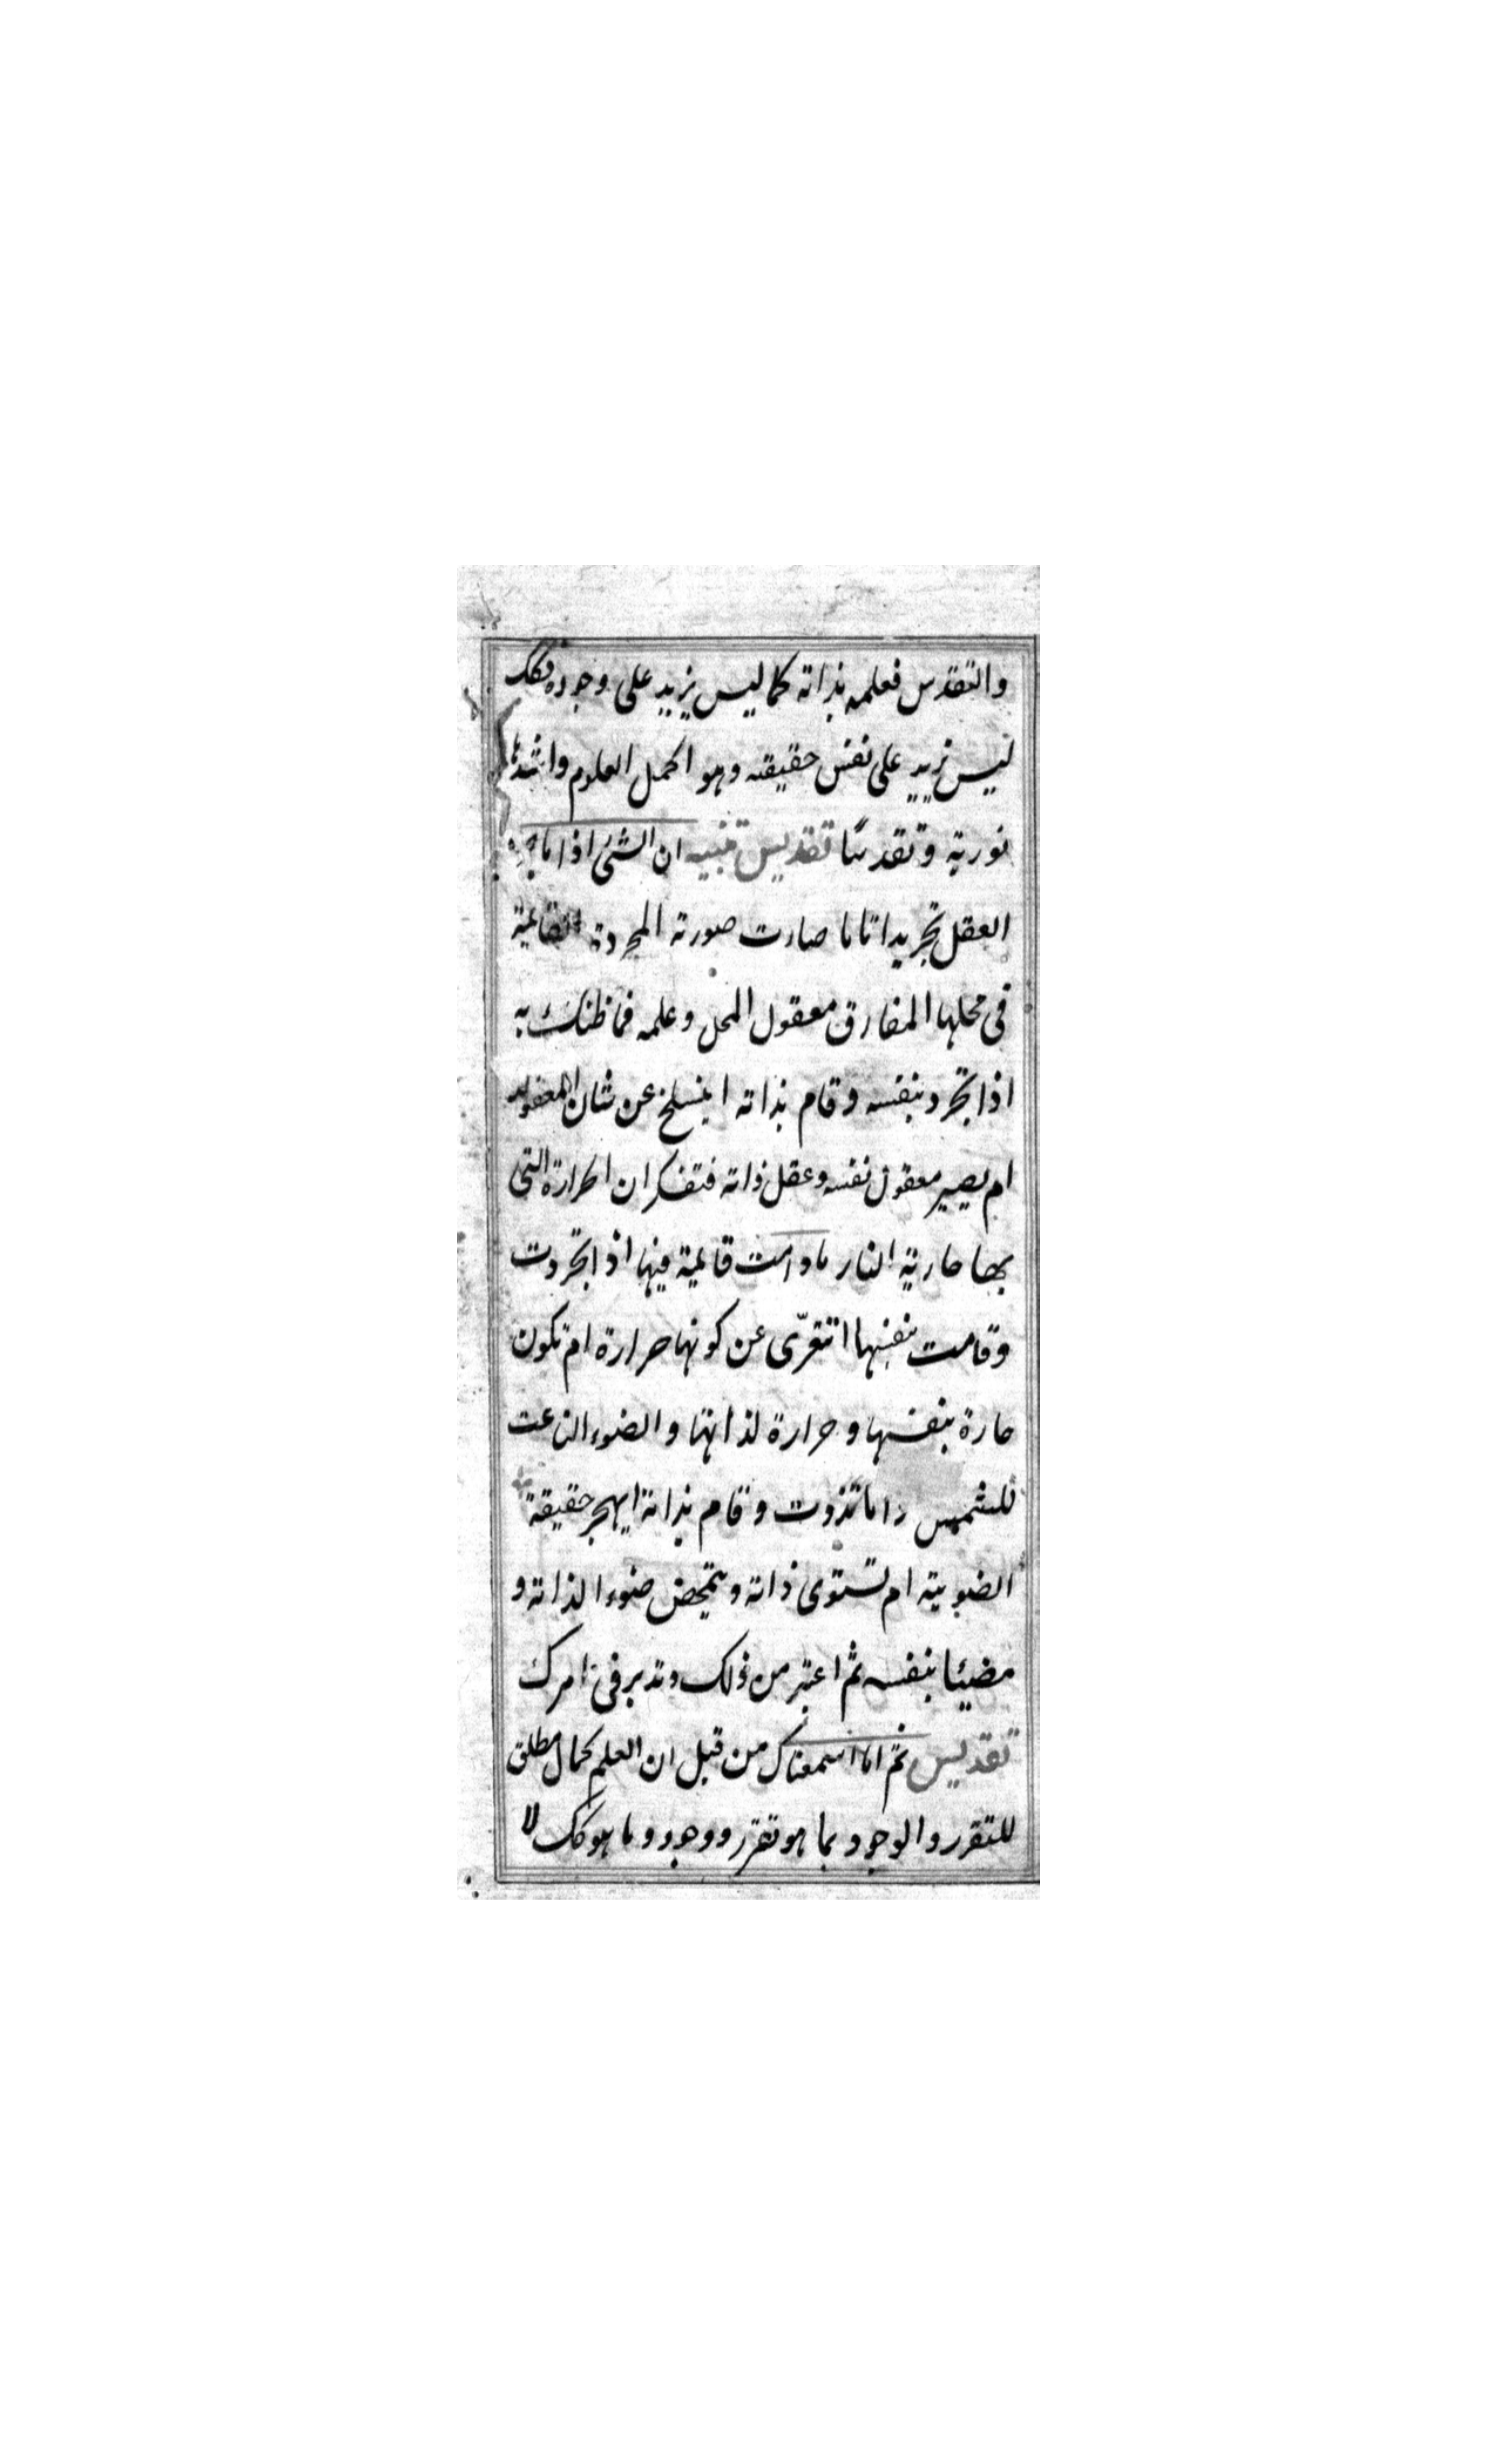 والتقدس فعلمه بذاته كما ليس يزيد على وجوده فكك
ليس يزيد على نفس حقيقته وهو اكمل العلوم واشدها
نورية وتقدسا تقديس تنبيه ان الشئ اذا ما جرده
العقل تجريدا تاما صارت صورته المجردة القائمة
فى محلها المفارق معقول المحل وعلمه فما ظنك به
اذا تجرد بنفسه وقام بذاته اينسلخ عن شان المعقولية
ام يصير معقول نفسه وعقل ذاته فتفكر ان الحرارة التى
بها حارية النار ما دامت قائمة فيها اذا تجردت
وقامت بنفسها اتتعرّى عن كونها حرارة ام تكون
حارة بنفسها وحرارة لذاتها والضوء الناعت
للشمس اذا ما تذوت وقام بذاته ايهجر حقيقة
الضوئية ام تستوى ذاته ويتمحض ضوءا لذاته و
مضيئا بنفسه ثم اعتبر من ذلك وتدبر فى امرك
تقديس ثم اما اسمعناك من قبل ان العلم كمال مطلق
للتقرر والوجود بما هو تقرر ووجود وما هو كك لا